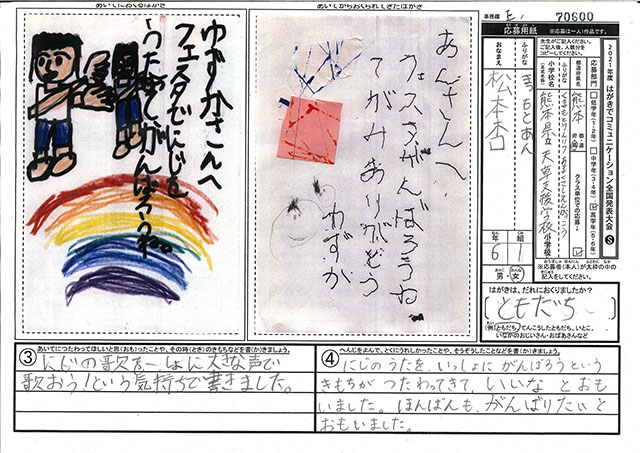 あいてにおくるはがき
ゆずかさんへ
フェスタでにじを
うたおう。がんばろうね。
あいてからおくられてきたはがき
あんさんへ
フェスタがんばろうね
てがみありがとう
ゆずか
事務欄
70600
応募用紙
※応募は一人1作品です。
2021年度 はがきでコミュニケーション全国発表大会
応募部門
低学年(1・2年)
中学年(3・4年)
高学年(5・6年)
クラス単位での応募
ふりがな
都道府県名
小学校名
熊本
熊本県立 天草支援学校
小学校
ふりがな
おなまえ
まつもとあん
松本杏
6年
1組
男・女
※応募者(本人)が太枠の中の
記入をしてください。
はがきは、だれにおくりましたか?
ともだち
(例)ともだち、てんこうしたともだち、いとこ、
いなかのおじいさん・おばあさんなど
③
あいてにつたわってほしいと思(おも)ったことや、その時(とき)のきもちなどを書(か)きましょう。
にじの歌を一しょに大きな声で
歌おう!という気持ちで書きました。
④
へんじをよんで、とくにうれしかったことや、そうぞうしたことなどを書(か)きましょう。
にじのうたを、いっしょに がんばろうという
きもちが つたわってきて、いいな とおも
いました。ほんばんも、がんばりたいと
おもいました。